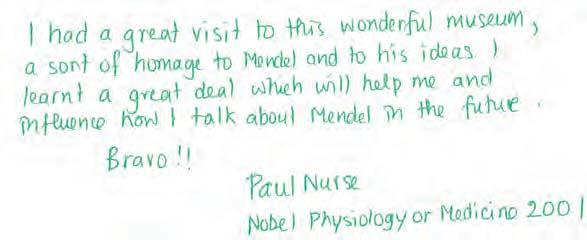 I had a great visit to this wonderful museum,
a sort of homage to Mendel and to his ideas. I
learnt a great deal which will help me and
influence how I talk about Mendel in the future.
Bravo!!
Paul Nurse
Nobel Physiology or Medicine 2001